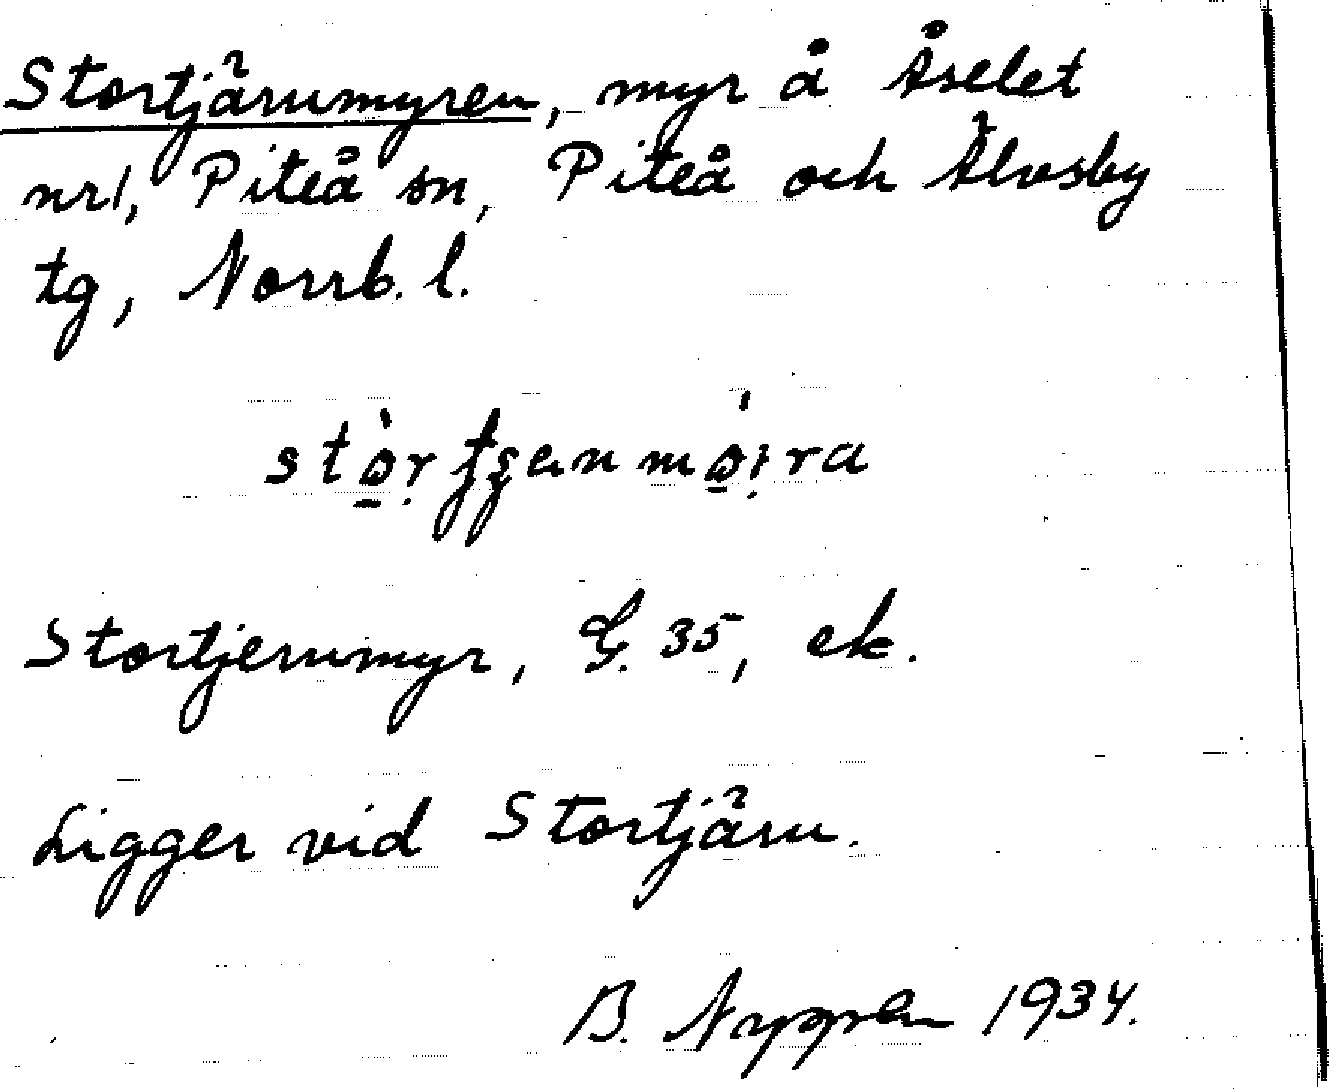 Stortjärnmyren, myr å Åselet
nr1, Piteå sn, Piteå och Älvsby
tg, Norrb. l.
Stortjernmyr, G. 35, ek.
Ligger vid Stortjärn.
B. 1934.